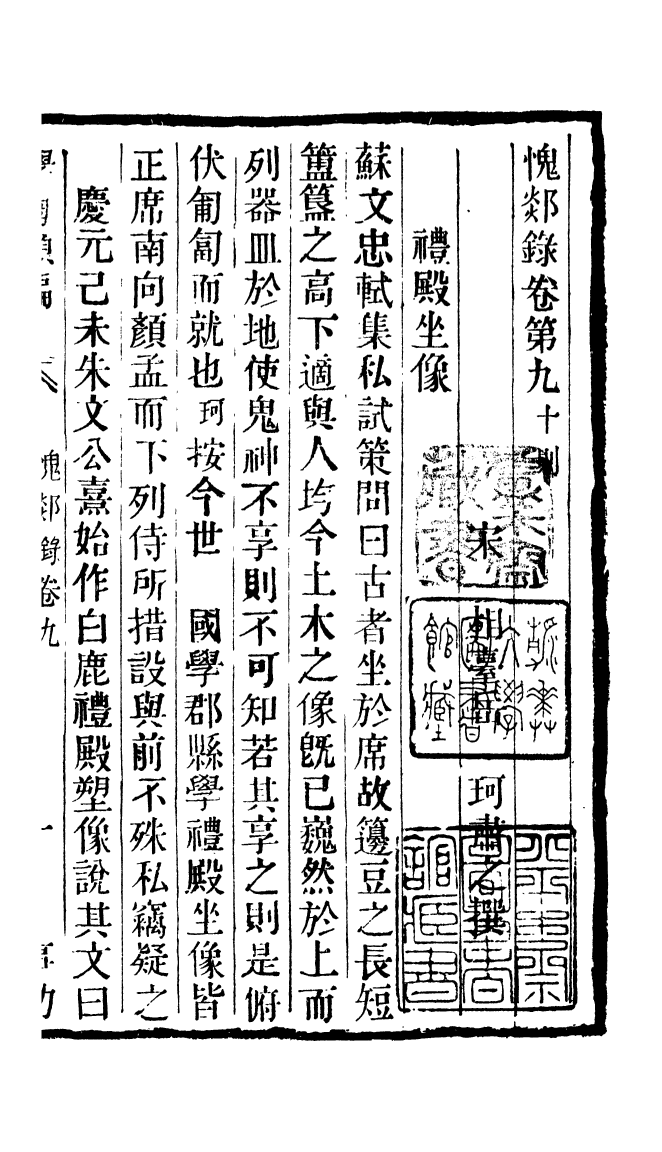 愧郯錄卷第九十則
宋 相臺岳 珂肅之撰
禮殿坐像
蘇文忠軾集私試策問曰古者坐於席故籩豆之長短
簠簋之高下適與人均今土木之像既已巍然於上而
列器皿於地使鬼神不享則不可知若其享之則是俯
伏匍匐而就也珂按今世 國學郡縣學禮殿坐像皆
正席南向顏孟而下列侍所措設與前不殊私竊疑之
慶元己未朱文公熹始作白鹿禮殿塑像說其文曰
愧郯錄卷九
一